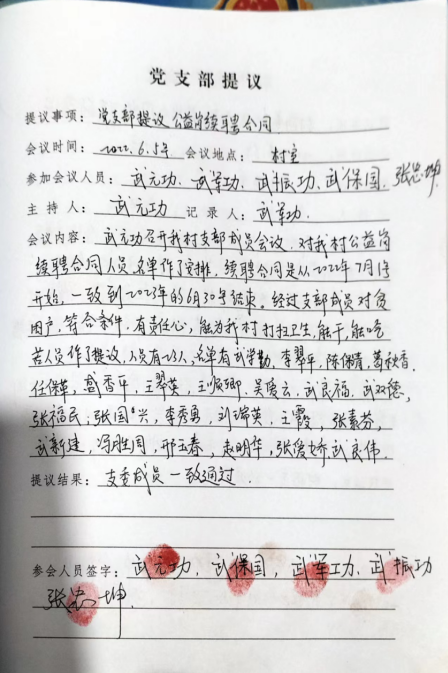 党支部提议
提议事项：党支部提议公益岗续聘合同
会议时间：2022.6.5号 会议地点：村室
参加会议人员：武元功、武军功、武振功、武保国、张忠坤
主持人：武元功 记录人：武军功.
会议内容：武元功召开我村支部成员会议，对我村公益岗
续聘合同人员名单作了安排，续聘合同是从2022年7月1号
开始，一致到2023年的6月30号结束。经过支部成员对贫
困户，符合条件，有责任心，能为我村打扫卫生，能干，能吃
苦人员作了提议，人员有23人，名单有武学勤，李翠平，陈俊清，葛秋香，
任保草，盛香平，王翠英，王顺卿，吴爱云，武良福，武双德，
张福民，张国兴，李秀勇，刘瑞英，王霞，张素芬，
武新建，冯胜周，邢玉春，赵明华，张爱娇，武良伟.
提议结果：支委成员一致通过.
参会人员签字：武元功、武保国、武军功、武振功
张忠坤.